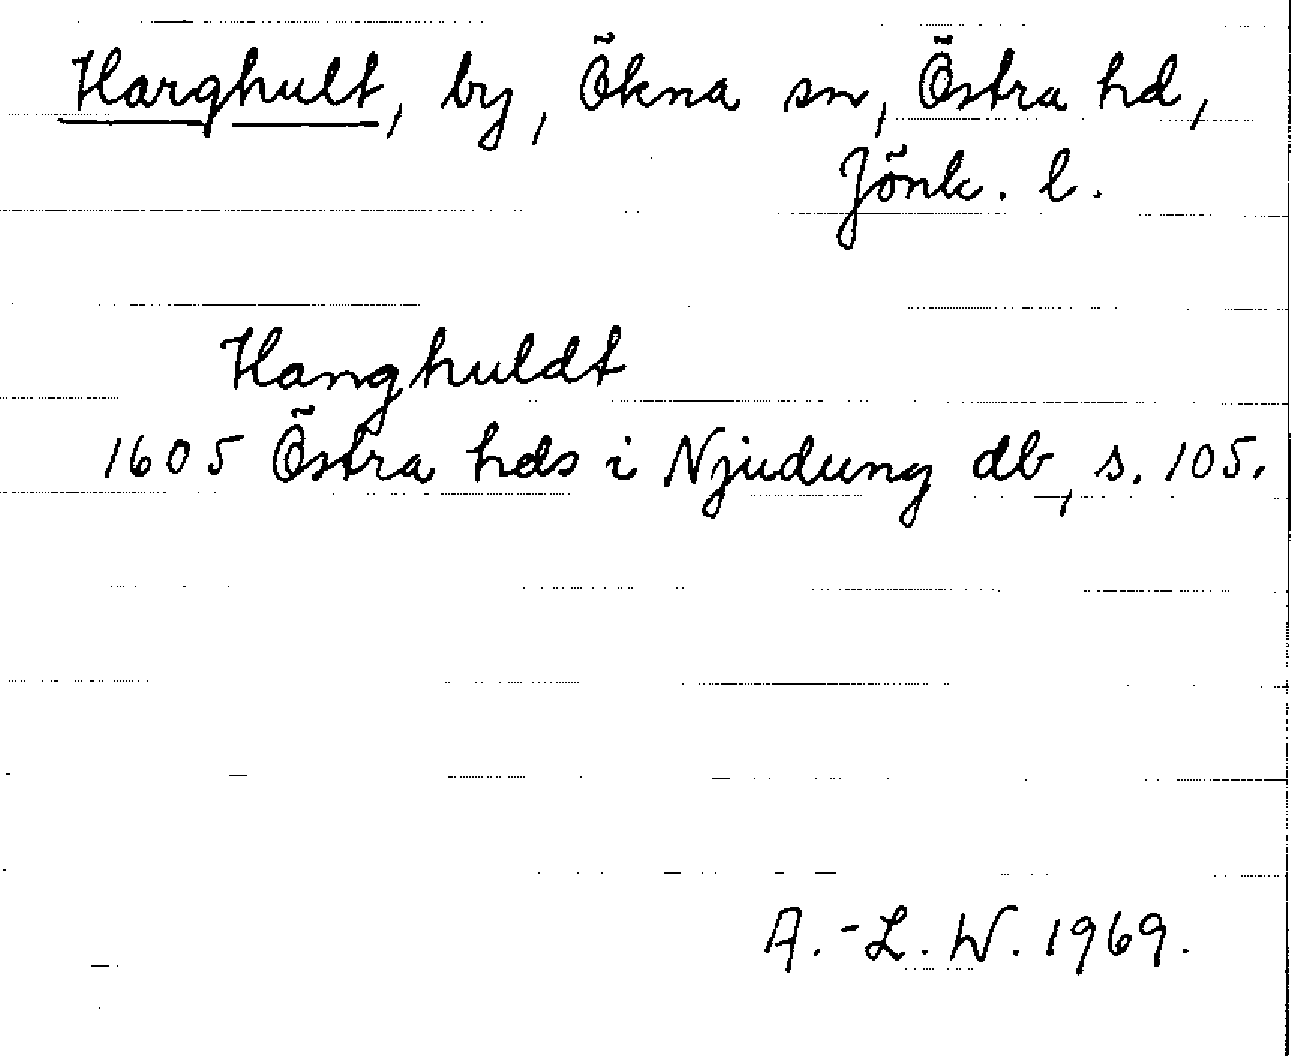 Harghult, by, Ökna sn, Östra hd,
Jönk. l.
Hanghuldt
1605 Östra hds i Njudung db, s. 105.
A.-L. W. 1969.